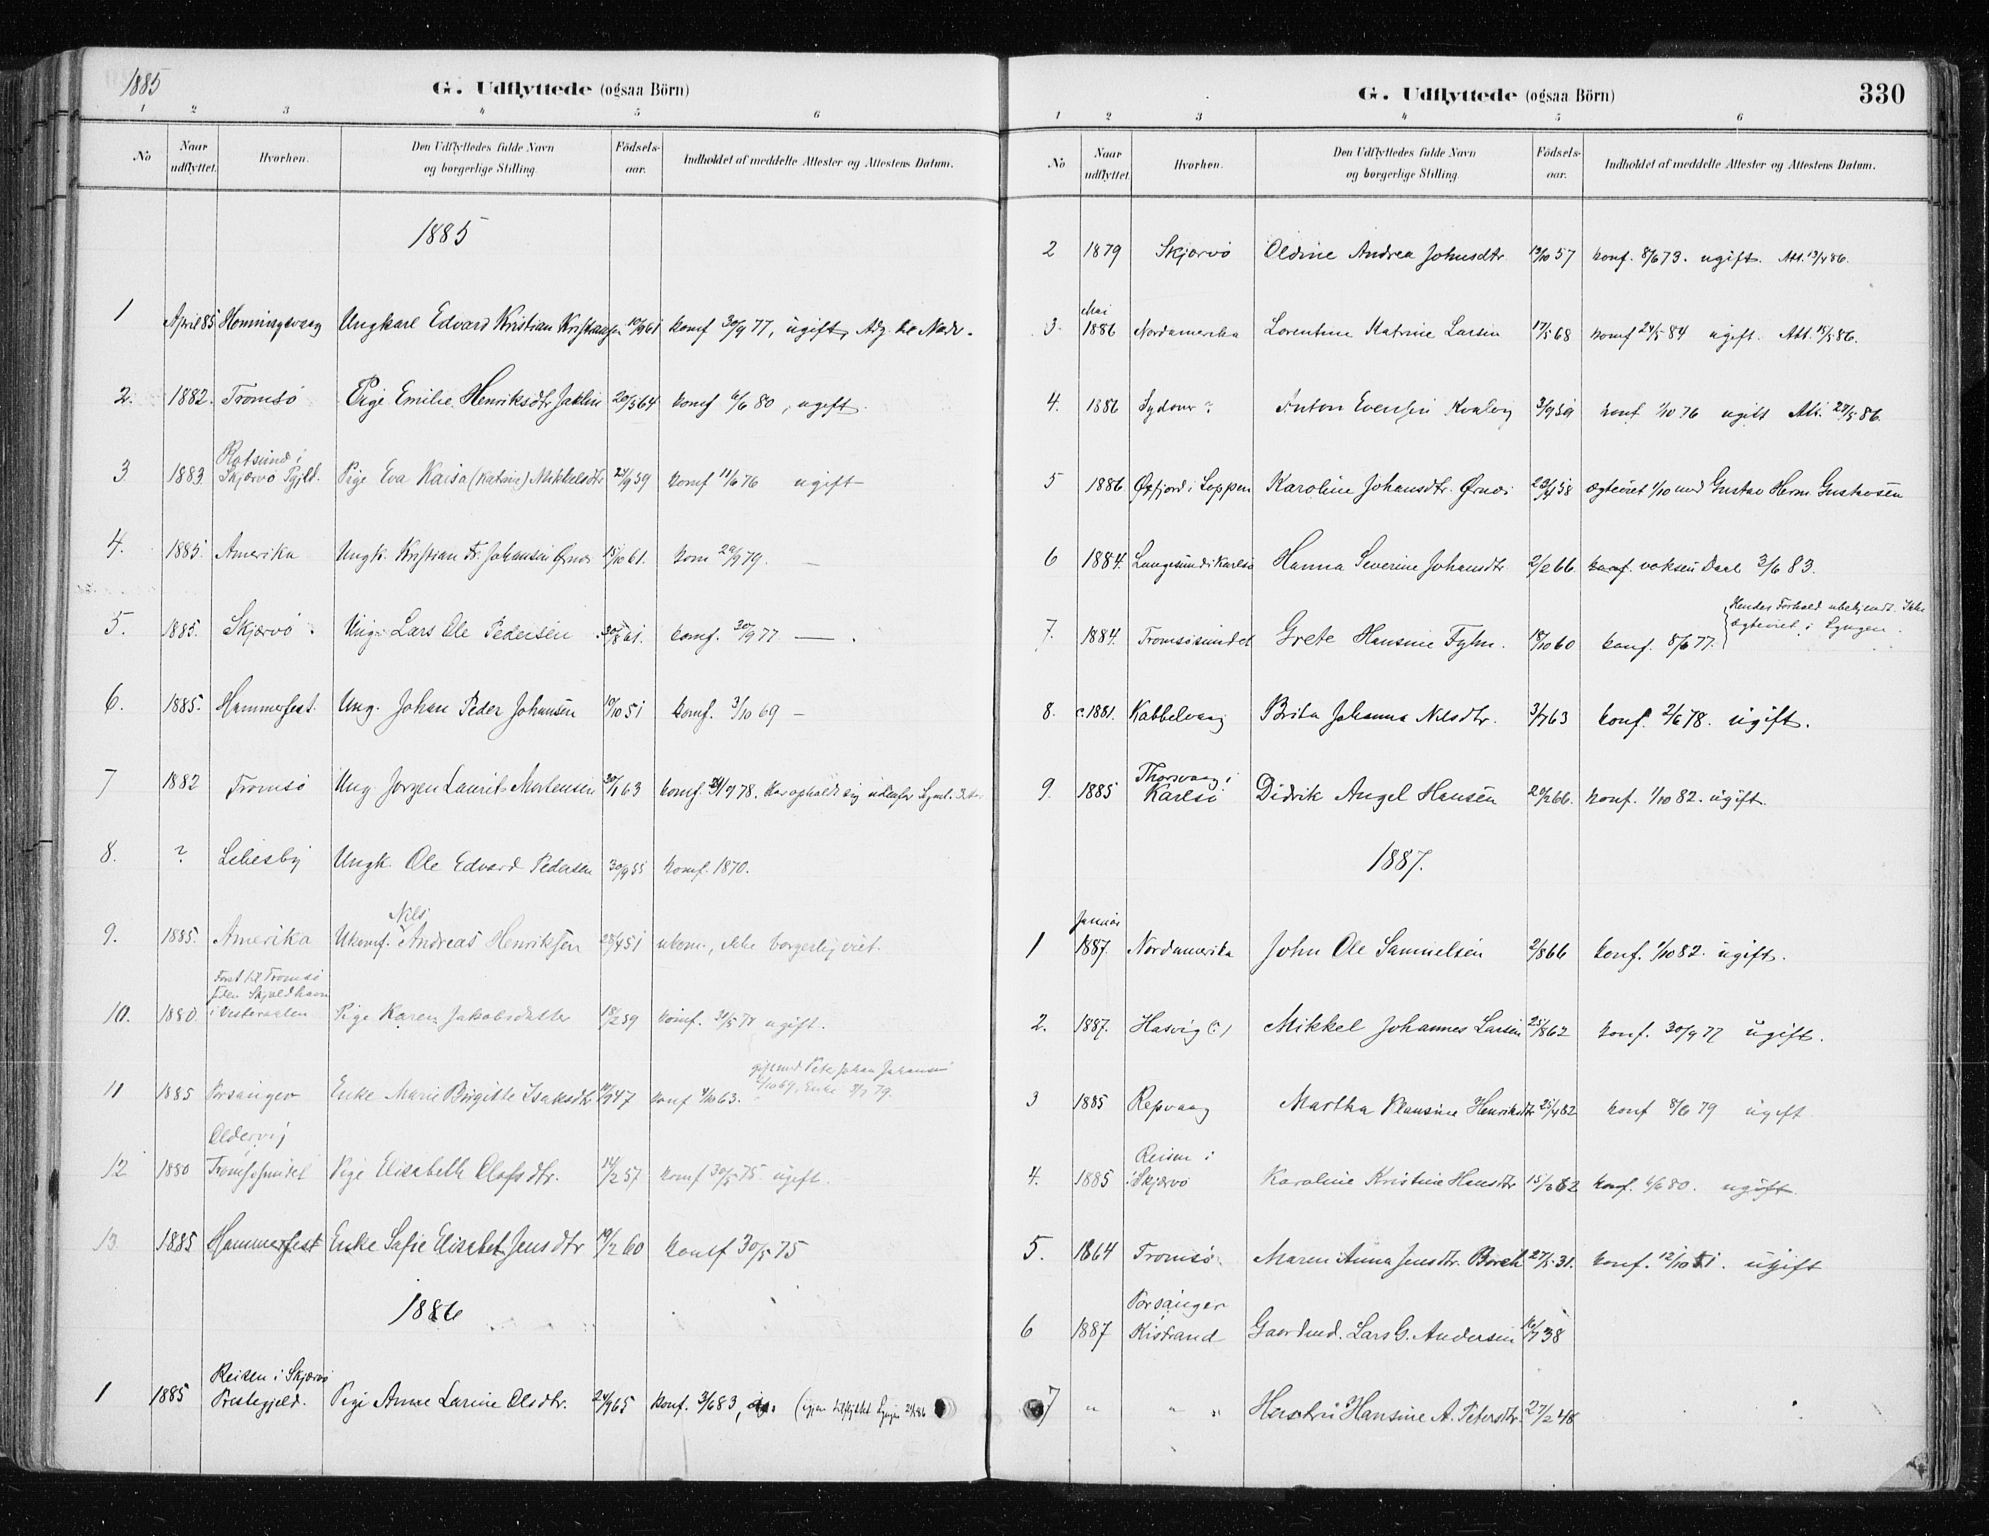 1885
G. Udflyttede (ogsaa Börn)
1 2 3 4 5 6
No
Naar udflyttet.
Hvorhen.
Den Udflyttedes fulde Navn og borgerlige Stilling
Födsels-aar.
Indholdet af meddelte Attester og Attestens Datum.
1885
1 April 85 Honningsvaag Ungkarl Edvard Kristian Kristiansen 10/9 61 konf 30/9 77, ugift,
2. 1882. Tromsö Pige Emilie Henriksdtr 20/3 64 konf 6/6 80, ugift.
Rotsund i
3 1883 Skjærvö Pgjld. Pige Eva Kaisa (Katrine) Mikkelsdtr 24/9 59 konf 11/6 76 ugift
4. 1885. Amerika Ungk. Kristian Fr. Johansen Ørnes 15/10 61. kom 29/9 79. —
5. 1885. Skjærvö. Ung. Lars Ole Pedersen 30/8 61. konf. 30/9 77 — .
6. 1885. Hammerfest. Ung. Johan Peder Johansen 10/10 51 konf. 3/10 69 —
7 1882 Tromsö Ung Jørgen Laurits Mortensen 30/1 63 konf. 78. Har opholdt sig udenfor
8. ? Lebesby Ungk. Ole Edvard Pedersen 30/9 55 konf. 1870.
Nils
9. 1885. Amerika Ukonf. Andreas Henriksen 28/4 51 ukonf., ikke borgerlig viet.
Først til Tromsö siden Skjoldhavn
10. 1880. i Vesteraalen Pige Karen Jakobsdatter 18/2 59 konf. ugift.
gift med Peter Johan Johansen
69. Enke 79.
11 1885 Porsanger Enke Marie Birgitte Isaksdtr 47 konf 4/10 63.
Oldervig
12 1880 Tromsøsundet Pige Elisabeth Olafsdtr. 14/2 57 konf 30/5 75 ugift.
13 1885 Hammerfest Enke Safie Elisabet Jensdtr 19/2 60 konf 30/5 75
1886
Reisen i Skjærvö
1 1885 Prestegjeld. Pige Anne Larine Olsdtr. 24/9 65 konf. 3/6 83, (igjen tilflyttet Lyngen
330
G. Udflyttede (ogsaa Börn)
1 2 3 4 5 6
No
Naar udflyttet.
Hvorhen.
Den Udflyttedes fulde Navn og borgerlige Stilling
Födsels-aar.
Indholdet af meddelte Attester og Attestens Datum.
2 1879 Skjærvö Oldine Andrea Johnsdtr 13/10 57 konf. 8/6 73. ugift. Att. 13/4 86.
Mai
3. 1886 Nordamerika Lorentine Katrine Larsen 17/5 68 konf 24/5 84 ugift. Att. 15/5 86.
4. 1886 ? Anton Evensen Kvalvig 3/9 59 konf. 1/10 76 ugift Att. 27/5 86.
5 1886 Øxfjord i Loppen Karoline Johansdtr. Ørnes 23/4 58 ægteviet 1/10 med Gustav Herm. Gustavsen
6 1884. Langesund i Karlsö Hanna Severine Johansdtr 2/2 66 konf. voksen Daab 3/6 83.
Hendes Forhold ubekjendt. Ikke
ægteviet i Lyngen.
7. 1884. Tromsösundet Grete Hansine Fyhn. 18/10 60 konf. 8/6 77.
8. c. 1881. Kabbelvaag Brita Johanna Nilsdtr. 3/7 63 konf. 2/6 78. ugift.
Thorsvaag i
9. 1885 Karlsö Didrik Angel Hansen 20/2 66. konf. 1/10 82. ugift.
1887.
Januar
1 1887. Nordamerika John Ole Samuelsen 2/8 66 konf. 1/10 82. ugift.
2. 1887. Hasvig (?) Mikkel Johannes Larsen 25/8 62 konf. 30/9 77 ugift.
3 1885 Repvaag Martha Klausine Henriksdtr 25/4 62 konf 8/6 79 ugift
Reisen i
4. 1885 Skjærvö Karoline Kristine Hansdtr 15/3 62 konf. 6/6 80. ugift.
5. 1864 Tromsö Maren Anna Jensdtr. Borch 27/5 31. konf. 12/10 51. ugift
Porsanger
6 1887 Kistrand Gaardmd. Lars G. Andersen 38
7 " " " Hustru Hansine A. Petersdtr. 27/2 48